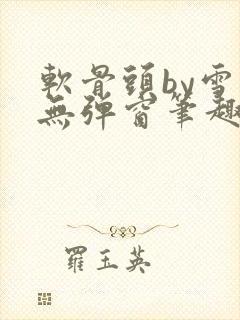 軟骨頭by雪
無彈窗筆趣
羅玉英